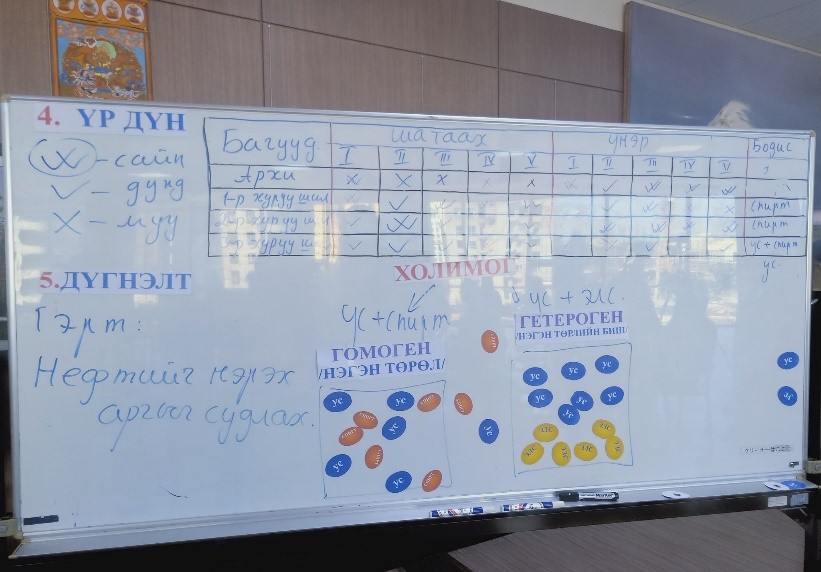 4. ҮР ДҮН
– сайн
– дунд
– муу
Багууд шатаах үнэр Бодис
I II III IV V I II III IV V
Архи
1-р хуруу шил спирт
хуруу шил спирт
хуруу шил ус + спирт
ус
5.ДҮГНЭЛТ
Гэрт:
Нефтийг нэрэх
аргыг судлах.
ХОЛИМОГ
ус + спирт
ГОМОГЕН
/НЭГЭН ТӨРӨЛ/
ус ус спирт
спирт
спирт ус
ус спирт
ус спирт
спирт
спирт
ус
ус + элс.
ГЕТЕРОГЕН
/НЭГЭН ТӨРЛИЙН БИШ/
ус ус ус
ус ус ус
ус
ЭЛС ЭЛС
ЭЛС ЭЛС ЭЛС ЭЛС
ус
ус